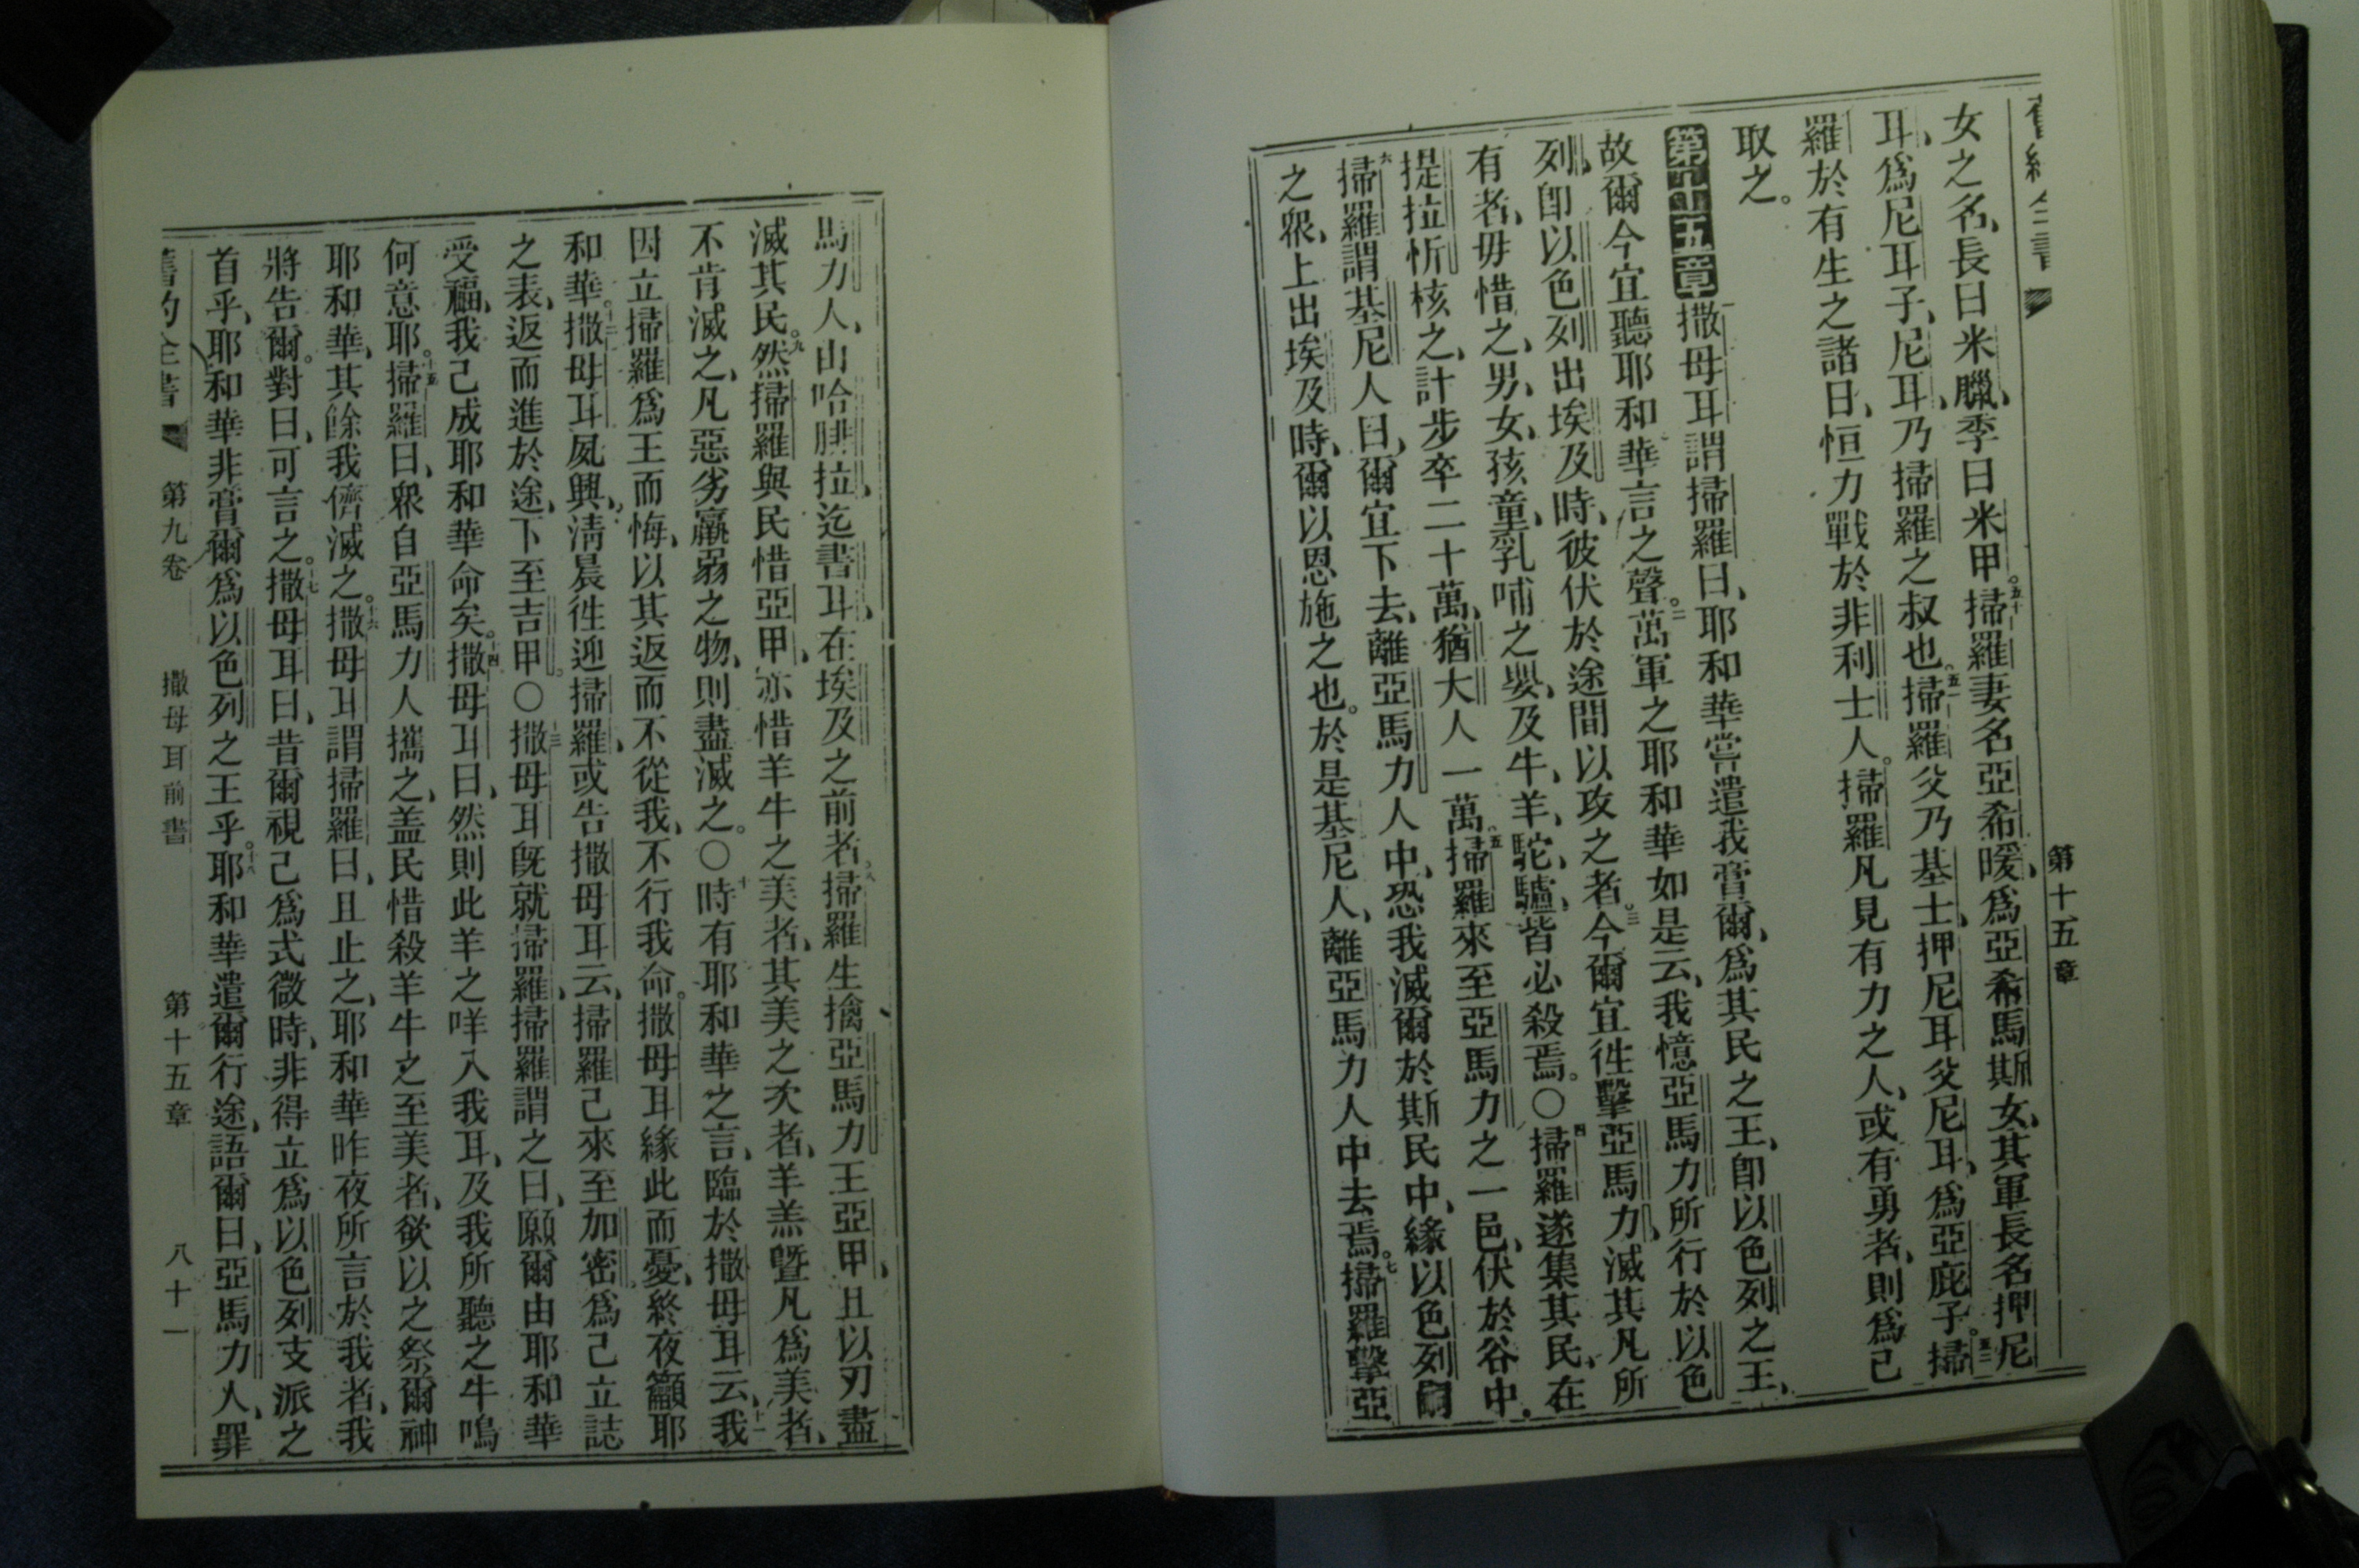 第十五章
女之名、長曰米臘、季曰米甲。五十掃羅妻名亞希暖、爲亞希馬斯女、其軍長名押尼
耳、爲尼耳子、尼耳、乃掃羅之叔也。五一掃羅父乃基士、押尼耳父尼耳、爲亞庇子。五二掃
羅於有生之諸日、恒力戰於非利士人。掃羅凡見有力之人、或有勇者、則爲己
取之。
第十五章一撒母耳謂掃羅曰、耶和華嘗遣我膏爾、爲其民之王、卽以色列之王、
故爾今宜聽耶和華言之聲。二萬軍之耶和華如是云、我憶亞馬力所行於以色
列、卽以色列出埃及時、彼伏於途間以攻之者。三今爾宜徃擊亞馬力、滅其凡所
有者、毋惜之、男、女、孩童、乳哺之嬰、及牛、羊、駝、驢、皆必殺焉。〇四掃羅遂集其民、在
提拉忻核之、計步卒二十萬、猶大人一萬。五掃羅來至亞馬力之一邑、伏於谷中。
六掃羅謂基尼人曰、爾宜下去、離亞馬力人中、恐我滅爾於斯民中、緣以色列
之衆、上出埃及時、爾以恩施之也。於是基尼人、離亞馬力人中去焉。七掃羅擊亞
馬力人、由哈腓拉、迄書耳、在埃及之前者。八掃羅生擒亞馬力王亞甲、且以刃盡
滅其民。九然掃羅與民惜亞甲、亦惜羊牛之美者、其美之次者、羊羔曁凡爲美者、
不肯滅之、凡惡劣羸弱之物、則盡滅之。〇十時有耶和華之言、臨於撒母耳云、十一我
因立掃羅爲王而悔、以其返而不從我、不行我命。撒母耳緣此而憂、終夜籲耶
和華。十二撒母耳夙興、清晨徃迎掃羅、或告撒母耳云、掃羅己來至加密、爲己立誌
之表、返而進於途、下至吉甲。〇十三撒母耳旣就掃羅、掃羅謂之曰、願爾由耶和華
受福、我己成耶和華命矣。十四撒母耳曰、然則此羊之咩入我耳、及我所聽之牛鳴
何意耶。十五掃羅曰、衆自亞馬力人攜之、盖民惜殺羊牛之至美者、欲以之祭爾神
耶和華、其餘我儕滅之。十六撒母耳謂掃羅曰、且止之、耶和華昨夜所言於我者、我
將告爾。對曰、可言之。十七撒母耳曰、昔爾視己爲式微時、非得立爲以色列支派之
首乎、耶和華非膏爾爲以色列之王乎。十八耶和華遣爾行途、語爾曰、亞馬力人、罪
舊約全書 第九卷 撒母耳前書 第十五章 八十一